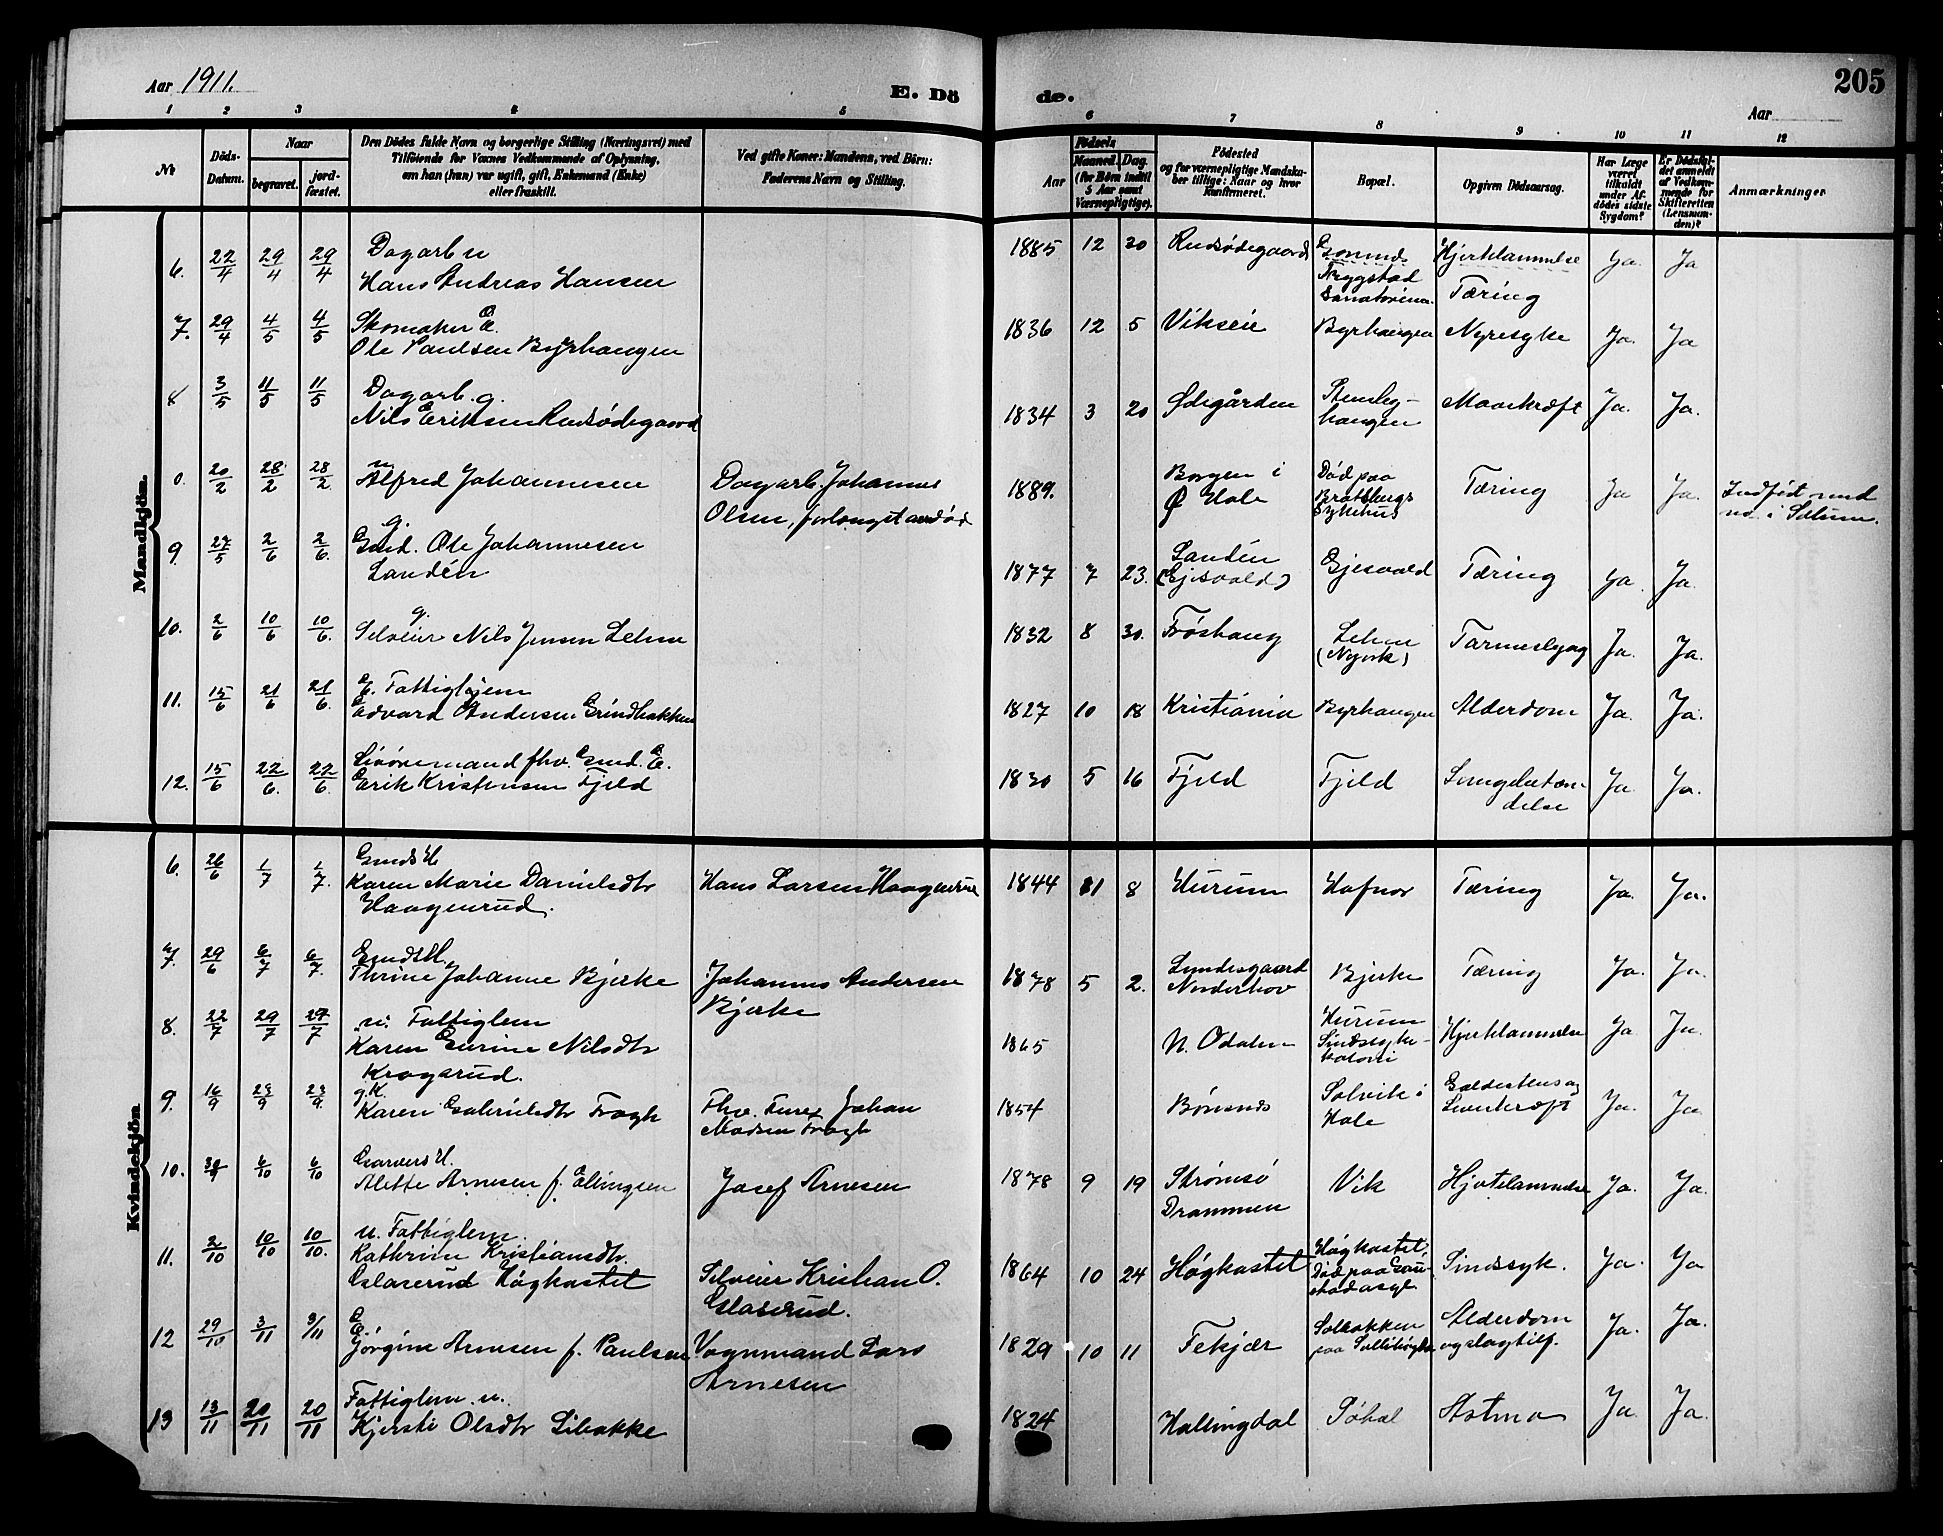 Aar 1911.
E. Dö
de.
Aar
205
1 2 3 4 5 6 7 8 9 10 11 12
No
Döds-Datum.
Naar
begravet.
jord-fæstet.
Den Dödes fulde Navn og borgerlige Stilling (Næringsvei) med
Tilföiende for Voxnes Vedkommende af Oplysning,
om han (hun) var ugift, gift, Enkemand (Enke)
eller fraskilt.
Ved gifte Koner: Mandens, ved Börn:
Faderens Navn og Stilling.
Födsels
Aar
Maaned. Dag.
(for Börn indtil
5 Aar samt
Værnepligtige).
Födested
og for værnepligtige Mandska-
ber tillige: Naar og hvor
konfirmeret.
Bopæl.
Opgiven Dödsaarsag.
Har Læge
været
tilkaldt
under Af-
dödes sidste
Sygdom?
Er Dödsfal-
det anmeldt
af Vedkom-
mende for
Skifteretten
(Lensman-
den)?
Anmærkninger
Mandkjön.
6. 22/4 29/4 29/4 Dagarb u
Hans Andreas Hansen
1885 12 20 Rudsødegaard
Sanatorium
Hjertelammelse
Tæring
Ja. Ja
7. 29/4 4/5 4/5 Skomaker E.
Ole Paulsen Byrhaugen
1836 12 5 Vikseie Byrhaugen Nyresyke Ja. Ja
8 3/5 11/5 11/5 Dagarb. g.
Nils Eriksen Rudsødegaard
1834 3 20 Ødegården
haugen
Mavekræft Ja. Ja.
0. 20/2 28/2 28/2 u
Alfred Johannesen
Dagarb. Johannes
Olsen, forlængst avdød
1889. Borgen i
Ø Hole
Død paa
Bratsbergs
Sykehus
Tæring Ja Ja.
Indført med
no. i Solum.
9 27/5 2/6 2/6 g.
Gmd. Ole Johannesen
Sandén
1877 7 23. Sandén
(Gjesvald)
Gjesvald Tæring Ja. Ja.
10. 2/6 10/6 10/6 g.
Selveier Nils Jensen Lehne
1832 8 30. Frøshaug Lehne
Tarmeslyng Ja. Ja.
11. 15/6 21/6 21/6 E. Fattiglem
Edvard Andersen Grindbakken
1827 10 18 Kristiania Byrhaugen Alderdom Ja. Ja.
12. 15/6 22/6 22/6 Livøremand fhv. Gmd. E.
Erik Kristensen Fjeld
1830 5 16 Fjeld Fjeld Lungebetæn-
delse
Ja Ja.
Kvindekjön
6. 26/6 1/7 1/7 Gmds H
Karen Marie Danielsdtr
Haagenrud.
Hans Larsen Haagenrud
1844 11 8 Hurum Hafnor Tæring Ja. Ja.
7. 29/6 6/7 6/7 Gmds H.
Thrine Johanne Bjerke
Johannes Andersen
Bjerke
1878 5 2. Lundesgaard
Norderhov
Bjerke Tæring Ja. Ja.
8. 22/7 29/7 29/7 u. Fattiglem
Karen Gurine Nilsdtr
Krogsrud.
1865 N. Odalen Hurum
Sindssyke-
koloni
Hjertelammelse Ja Ja.
9. 16/9 23/9 23/9 g.K.
Karen Gabrielsdtr Fragh
Fhv. Furer Johan
Madsen Fragh
1854 Bønsnds Solvik i
Hole
Galdestens og
Leverkræft
Ja. Ja
10. 30/9 6/10 6/10 Garvers H.
Alette Arnesen f. Ellingsen
Josef Arnesen
1878 9 19 Strømsø
Drammen
Vik Hjertelammelse Ja. Ja.
11. 2/10 10/10 10/10. u. Fattiglem.
Kathrine Kristiansdtr.
Glaserud Høgkastet
Selveier Kristian O.
Glaserud.
1864 10 24 Høgkastet Høgkastet.
Død paa Gau-
stad asyl
Sindssyk. Ja. Ja
12 29/10 3/11 3/11 E.
Jørgine Arnesen f. Paulsen
Vognmand Lars
Arnesen
1829 10 11 Fekjær Solbakken
paa Sollihøgda
Alderdom
og slagtilf.
Ja. Ja.
13 13/11 20/11 20/11 Fattiglem u.
Kjersti Olsdtr Libakke
1824 Hallingdal Søhol Astma Ja Ja.